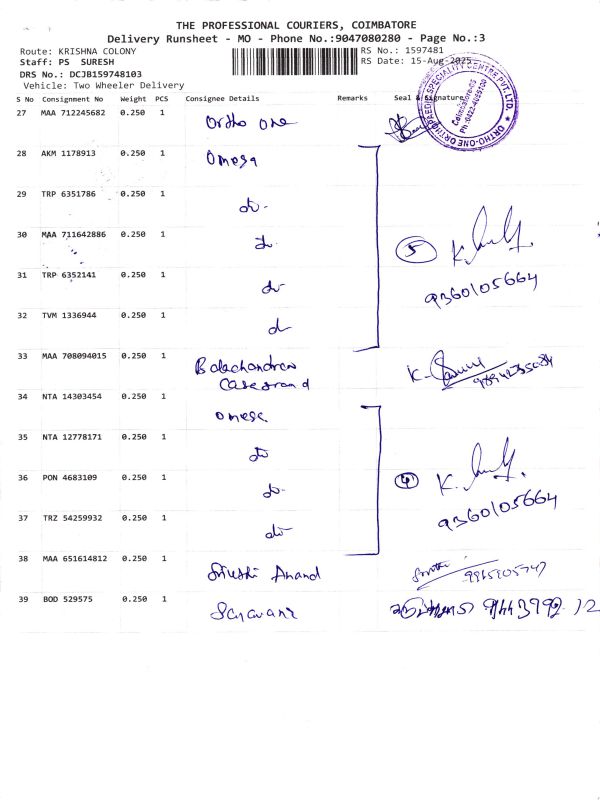 THE PROFESSIONAL COURIERS, COIMBATORE
Delivery Runsheet - MO - Phone No.:9047080280 - Page No.:3
Route: KRISHNA COLONY RS No.: 1597481
Staff: PS SURESH RS Date: 15-Aug-2025
DRS No.: DCJB159748103
Vehicle: Two Wheeler Delivery
S No Consignment No Weight PCS Consignee Details Remarks Seal & Signature
ORTHO-ONE ORTHOPAEDIC SPECIALITY CENTRE PVT.LTD
Coimbatore-05
27 MAA 712245682 0.250 1 Ortho One
28 AKM 1178913 0.250 1 Omega
29 TRP 6351786 0.250 1 do-
30 MAA 711642886 0.250 1 do-
5 K.
31 TRP 6352141 0.250 1 do-
9360105664
32 TVM 1336944 0.250 1 do
33 MAA 708094015 0.250 1 Balachandran K.
34 NTA 14303454 0.250 1 Omega
35 NTA 12778171 0.250 1 do
36 PON 4683109 0.250 1 do- 4 K.
37 TRZ 54259932 0.250 1 do- 9360105664
38 MAA 651614812 0.250 1 Srushti Anand
39 BOD 529575 0.250 1